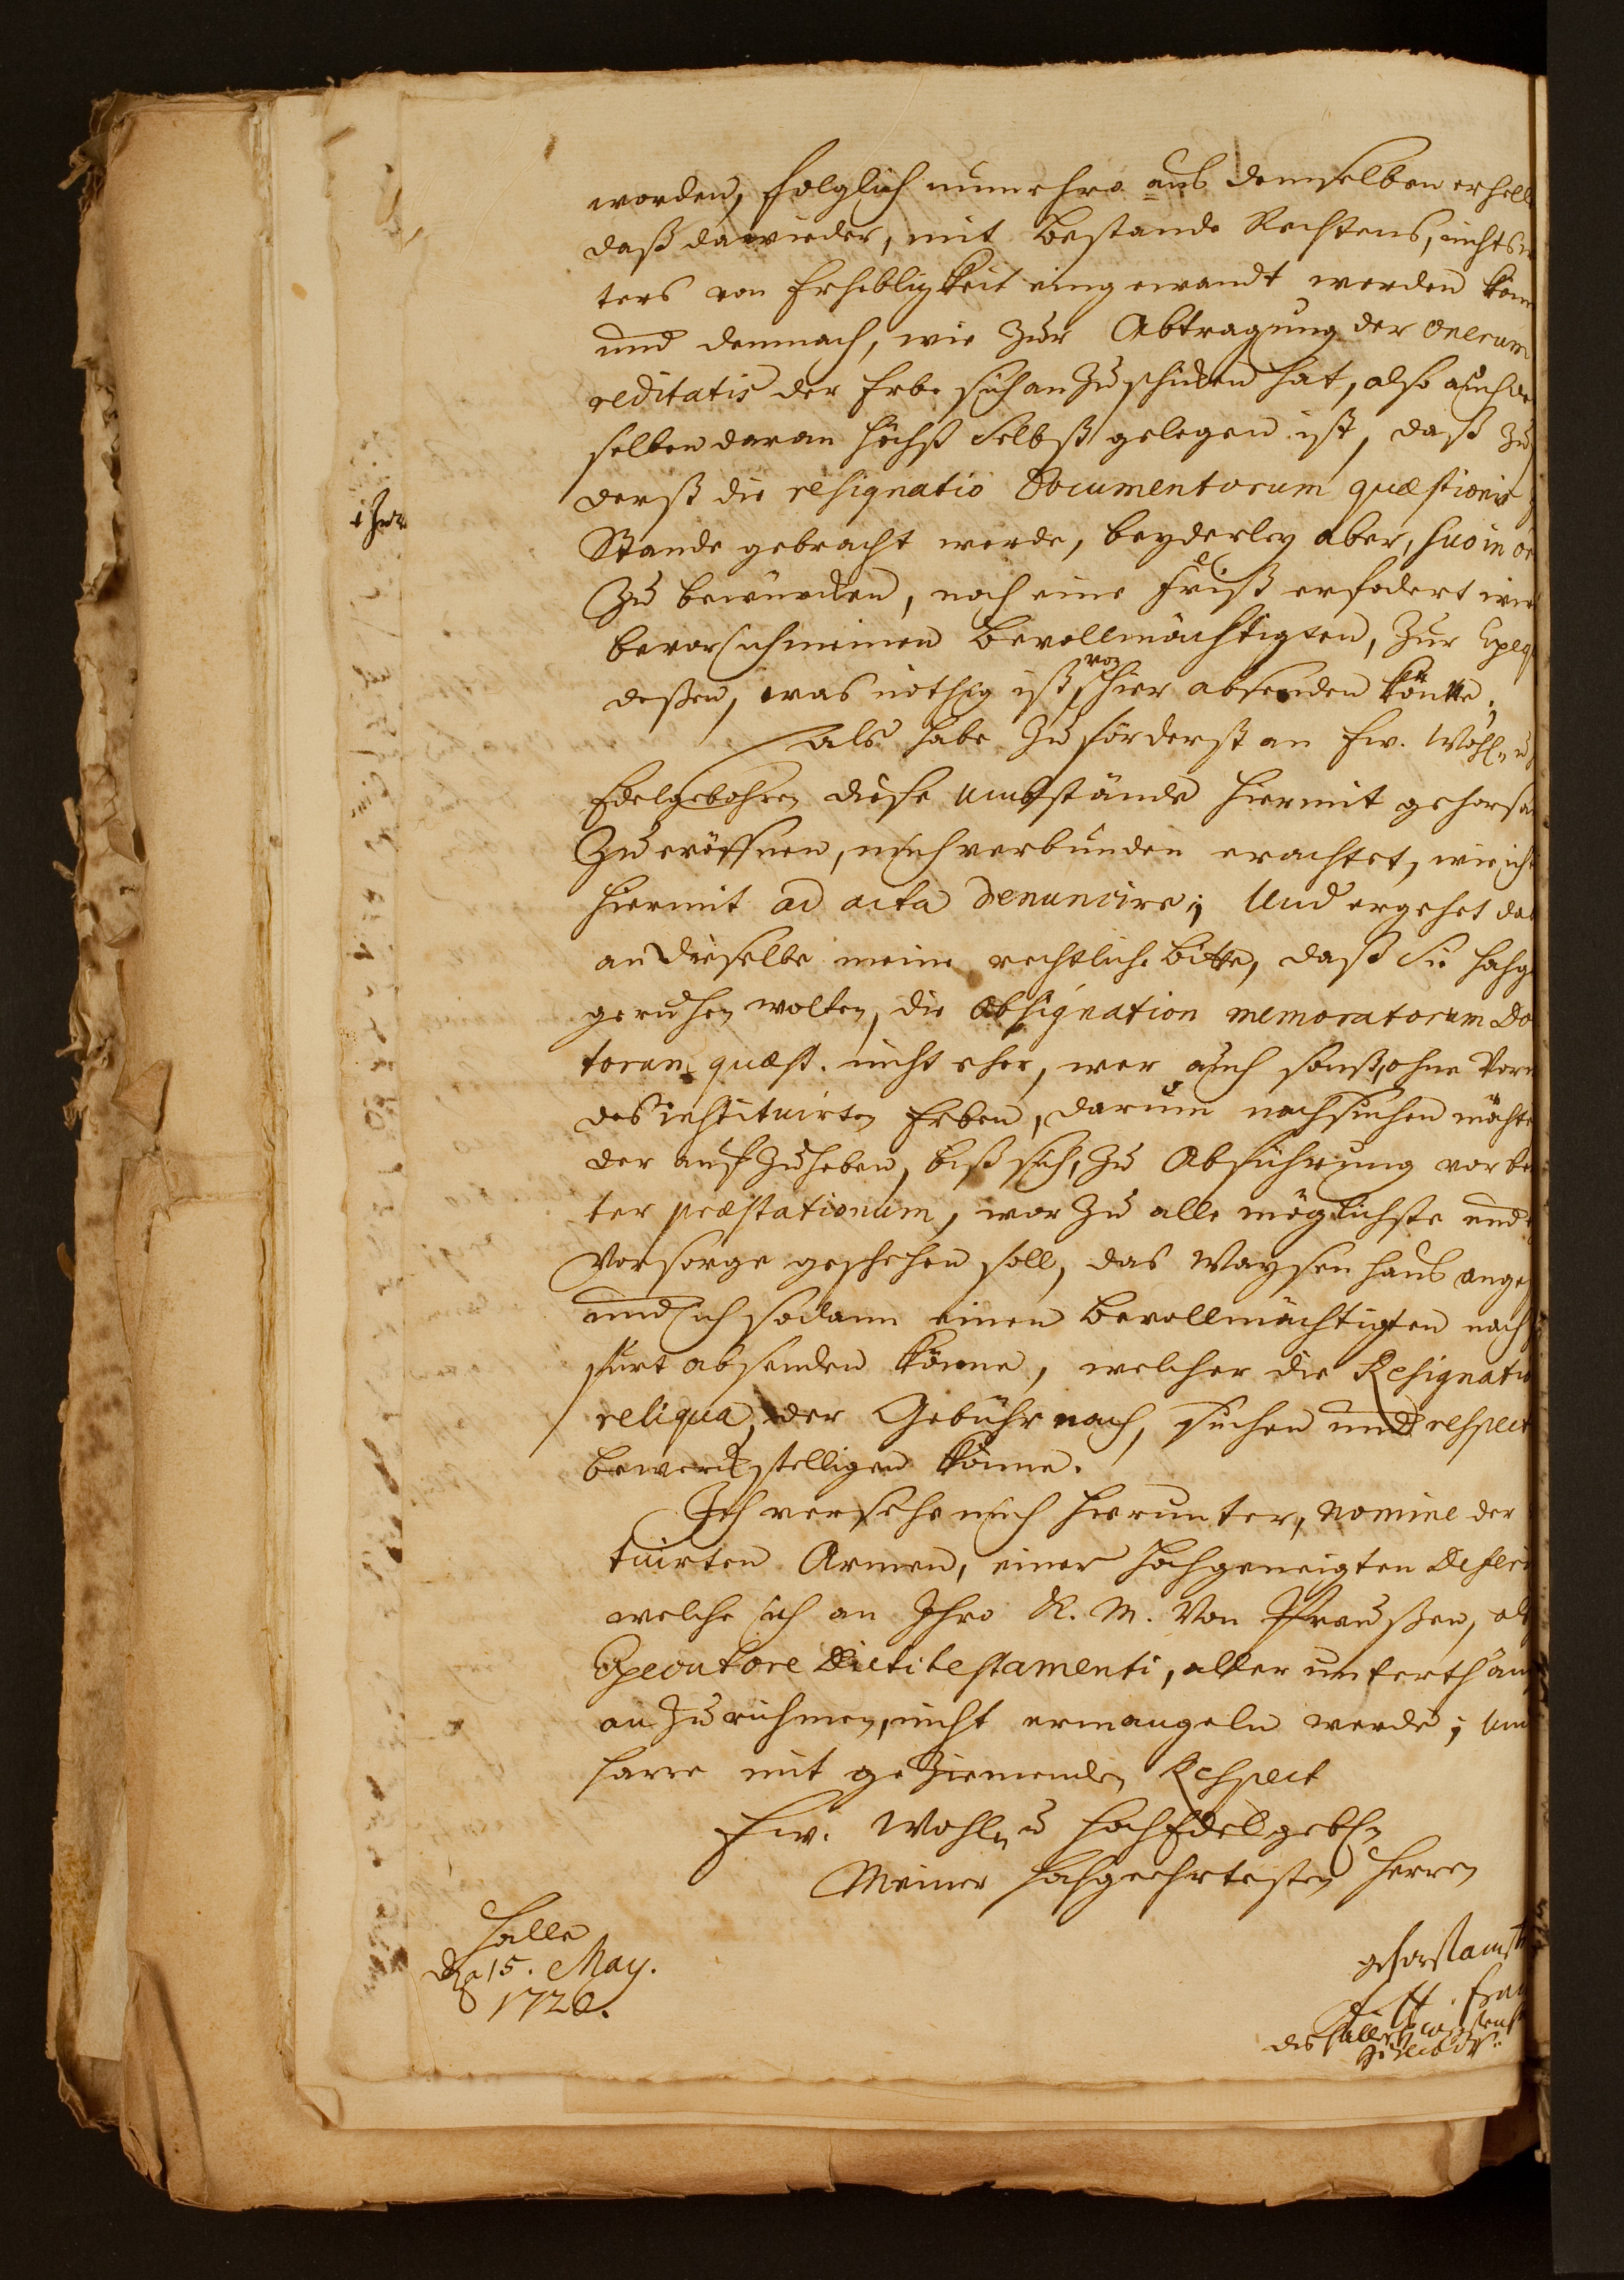 worden, folglich nunmehro aus demselben erhell
daß dawieder, mit bestande Rechtens, nichts
ters von Erhebligkeit eingewandt werden kön
und demnach, wie zur Abtragung der onerum
reditatis der Erbe sich anzuschicken hat, also auch
selben daran höchst selbst gelegen ist, daß zu
derst die resignatio Documentorum quæstionis
Stande gebracht werde, beyderley aber, suo in
zu bewürcken, noch eine Frist erfodert wird
bevor ich meinen Bevollmächtigten, zur Exeq
deßen, was nöthig ist, von hier absenden könte.
Als habe zuförderst an Ew. Wohl- u
Edelgebohren diese Umbstände hiermit gehorsa
zu eröffnen, mich verbunden erachtet, wie ich
hiermit ad acta denuncire; Und ergehet da
an dieselbe meine rechtliche bitte, daß Sie hochg
geruhen wolten, die Obsignation memoratorum Do
torum quæst. nicht eher, wer auch sonst, ohne Vor
des instituirten Erben, darum nachsuchen möchte
der aufzuheben, biß sich, zu Abführung vorbe
ter præstationum, worzu alle möglichste und
Vorsorge geschehen soll, das Waysenhaus ange
und ich sodann einen Bevollmächtigten nach
furt absenden könne, welcher die Resignatio
reliqua, der Gebühr nach, suchen und respect
bewerckstelligen könne.
Ich versehe mich hierunter, nomine der
tuirten Armen, einer hochgeneigten Deferi
welche ich an Ihro K. M. von Preußen, als
Executore dicti testamenti, allerunterthän
anzurühmen, nicht ermangeln werde; und
harre mit geziemenden Respect
Ew. Wohl- u HochEdelgebh
Meiner Hochgeehrtesten Herren
Halle
d. 15. May.
1720.
gehorsamst
A. H. Fran
des Hall.